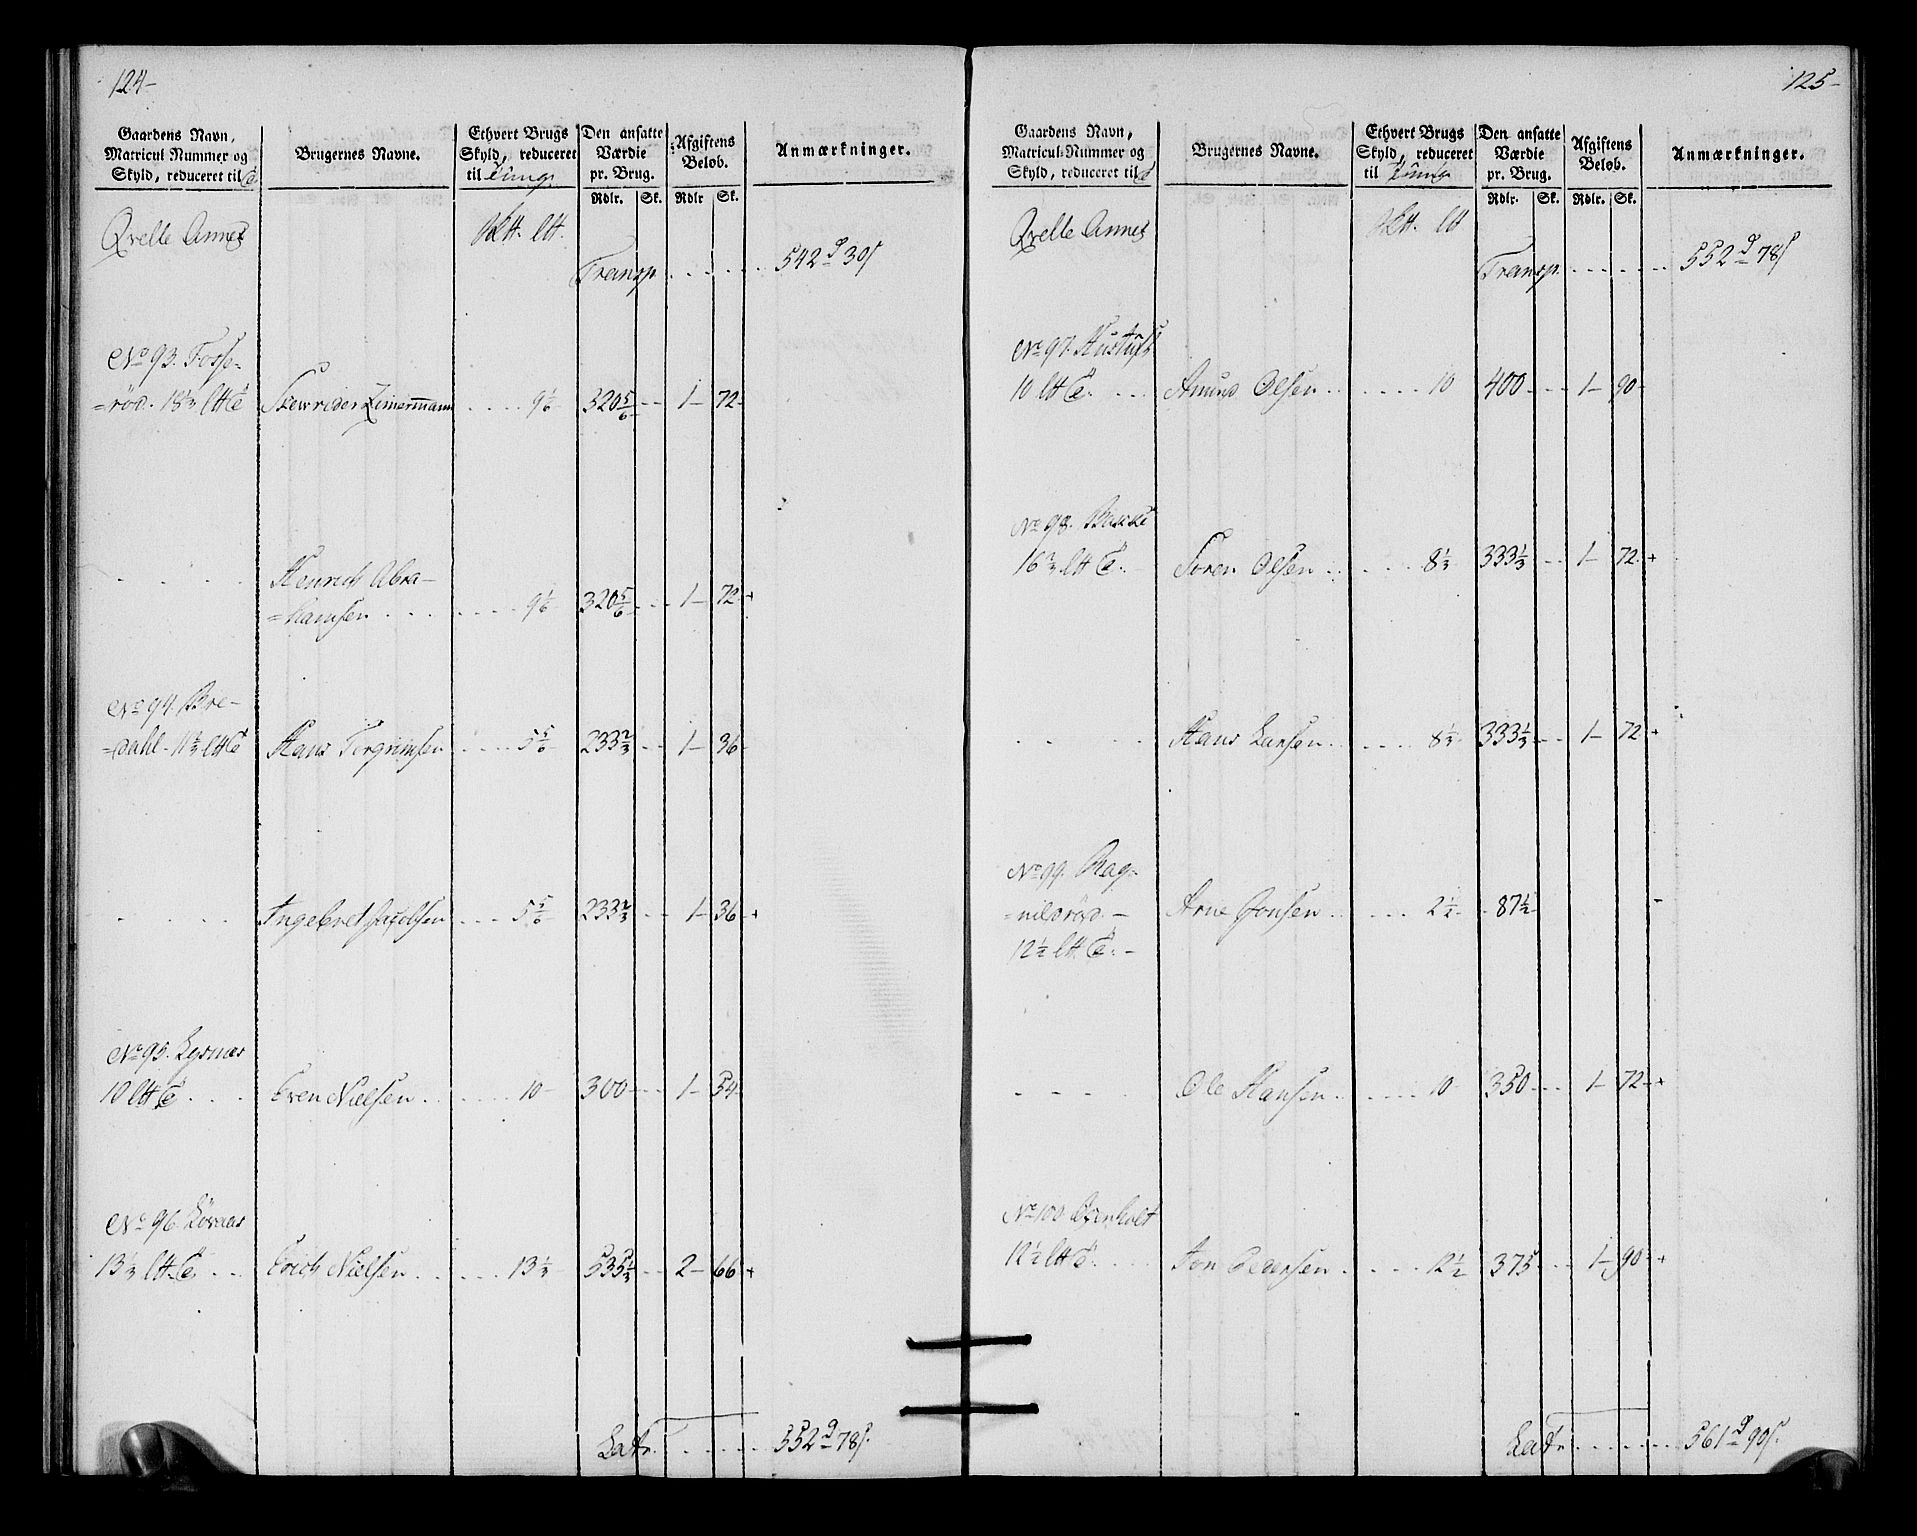 124-
Gaardens Navn,
Matricul Nummer og
Skyld, reduceret til
Brugernes Navne.
Ethvert Brugs
Skyld, reduceret
til Tunge
Den ansatte
Værdie
pr. Brug.
Afgiftens
Beløb.
Anmærkninger.
Rdlr. Sk. Rdlr Sk.
Qvelle Annex
Transp. . . . . . 542 d 30 s
No 93. Fosse-
=rød. 18⅓ ltt Skewrider Zimermann . . . . 9⅙ 320⅚ - - 1 - 72 -
Henrich Abra-
=hamsen . . . . . . . 9⅙ 320⅚ - - 1 - 72 +
No 94. Bre-
=dahl. 11⅔ ltt Hans Torgrimsen . . . . 5⅚ 233⅔ - - 1 - 36 -
Ingebret Jacobsen . . . 5⅚ 233⅔ - - 1 - 36 +
No 95. Lysnes
10 ltt . . . Even Nielsen . . . . . . 10 - 300 - - 1 - 54 -
No 96. Løvaas
13⅓ ltt . . Erich Nielsen . . . . . . 13⅓ 535⅓ - - 2 - 66 +
Latr. . . . . . 552 d 78 s.
125-
Gaardens Navn,
Matricul-Nummer og
Skyld, reduceret til
Brugernes Navne.
Ethvert Brugs
Skyld, reduceret
til Tunge
Den ansatte
Værdie
pr. Brug.
Afgiftens
Beløb.
Anmærkninger.
Rdlr. Sk. Rdlr. Sk.
Qvelle Annex
Transp. . . . . . . 552 d 78 s
No 97. Hustuft
10 ltt . . . Amund Olsen . . . . . . 10 400 - - 1 - 90 -
No 98. Bakke
16⅔ ltt . . Soren Olsen . . . . . . 8⅓ 333⅓ - - 1 - 72 +
Hans Larsen . . . . . 8⅓ 333⅓ - - 1 - 72 +
No 99. Rag-
=nildrød. - Arne Jonsen . . . . . 2½ - 87½ -
12½ ltt -
Ole Hansen . . . . . . 10 - 350 - - 1 - 72 +
No 100 Ørenholt
12½ ltt . . . . Jon Pedersen . . . . . 12½ 375 - - 1 - 90 +
Latr . . . . . . 561 d 90 s.